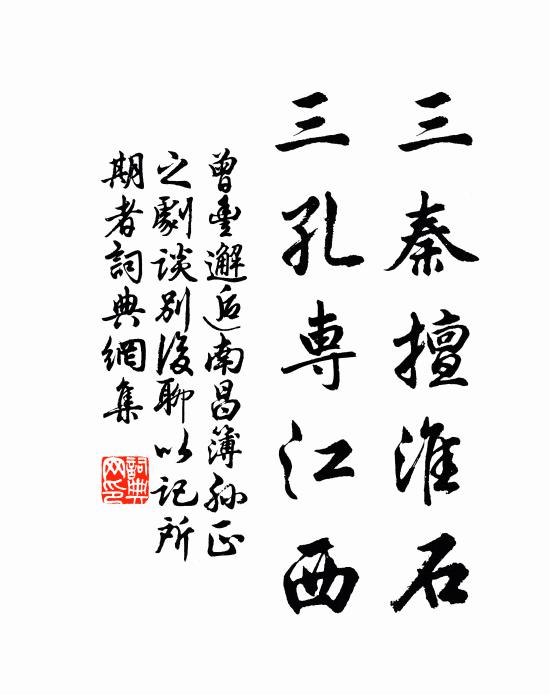 三秦擅淮石
三孔専江西
曾豊邂逅南昌簿孙正
之劇談別後聊以记所
期者詞典網集
詞典网印